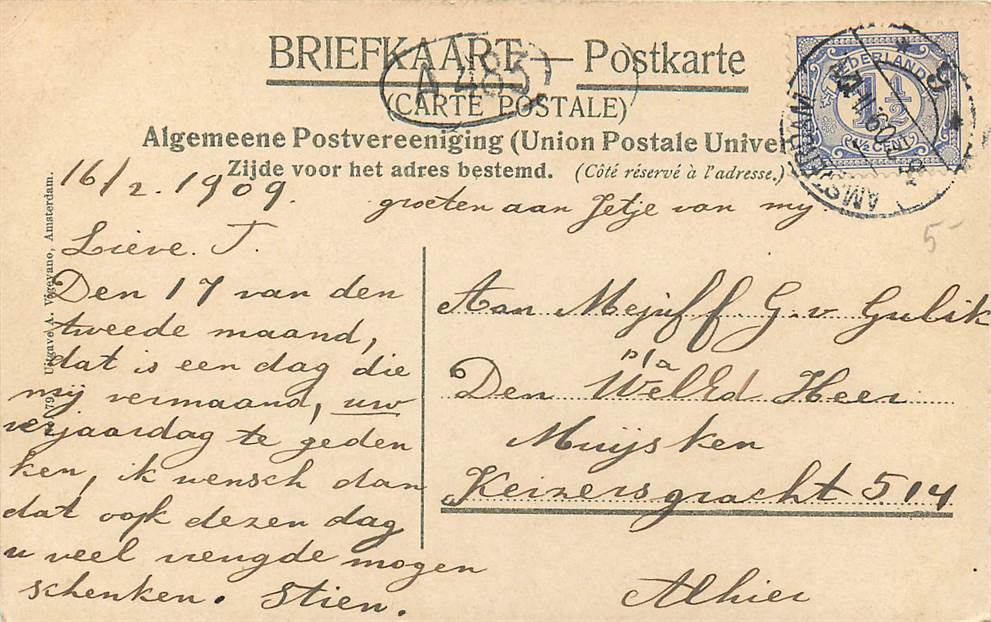 BRIEFKAART — Postkarte
A 483
(CARTE POSTALE)
Algemeene Postvereeniging (Union Postale Univer
Zijde voor het adres bestemd. (Côté réservé à l'adresse.)
NEDERLAND
1½
1½ CENT
AMSTERDAM
16/2. 1909.
groeten aan Jetje van my.
5-
Lieve. T.
Den 17 van den
tweede maand,
dat is een dag die
mij vermaand, uw
verjaardag te geden
ken, ik wensch dan
dat ook dezen dag
u veel vreugde mogen
schenken. Stien.
Aan Mejuff. G. v. Gulik
p/a
Den WelEd Heer
Muijsken
Keizersgracht 514
Alhier
79 Uitgave A. Vigevano, Amsterdam.